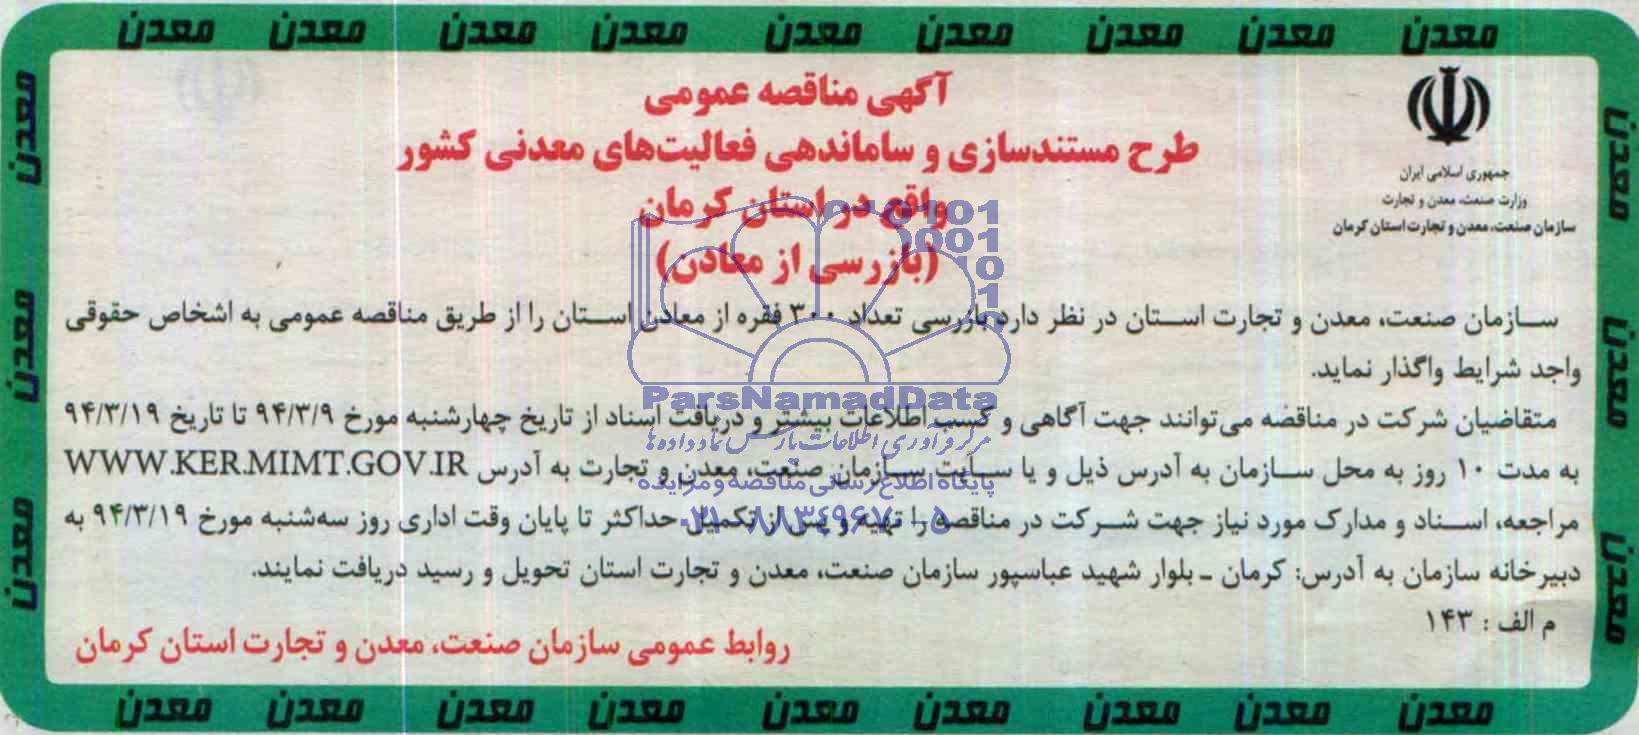 معدن معدن معدن معدن معدن معدن معدن معدن معدن
جمهوری اسلامی ایران
وزارت صنعت، معدن و تجارت
سازمان صنعت، معدن و تجارت استان کرمان
آگهی مناقصه عمومی
طرح مستندسازی و ساماندهی فعالیت‌های معدنی کشور
واقع در استان کرمان
(بازرسی از معادن)
سازمان صنعت، معدن و تجارت استان در نظر دارد بازرسی تعداد ۳۰۰ فقره از معادن استان را از طریق مناقصه عمومی به اشخاص حقوقی
واجد شرایط واگذار نماید.
متقاضیان شرکت در مناقصه می‌توانند جهت آگاهی و کسب اطلاعات بیشتر و دریافت اسناد از تاریخ چهارشنبه مورخ ۹۴/۳/۹ تا تاریخ ۹۴/۳/۱۹
به مدت ۱۰ روز به محل سازمان به آدرس ذیل و یا سایت سازمان صنعت، معدن و تجارت به آدرس WWW.KER.MIMT.GOV.IR
مراجعه، اسناد و مدارک مورد نیاز جهت شرکت در مناقصه را تهیه و پس از تکمیل حداکثر تا پایان وقت اداری روز سه‌شنبه مورخ ۹۴/۳/۱۹ به
دبیرخانه سازمان به آدرس: کرمان ـ بلوار شهید عباسپور سازمان صنعت، معدن و تجارت استان تحویل و رسید دریافت نمایند.
م الف : ۱۴۳
روابط عمومی سازمان صنعت، معدن و تجارت استان کرمان
ParsNamadData
مرکز فرآوری اطلاعات پارس نماد داده ها
پایگاه اطلاع رسانی مناقصه و مزایده
۰۲۱-۸۸۳۴۹۶۷۰-۵
معدن
معدن
معدن
معدن
معدن
معدن
معدن
معدن معدن معدن معدن معدن معدن معدن معدن معدن